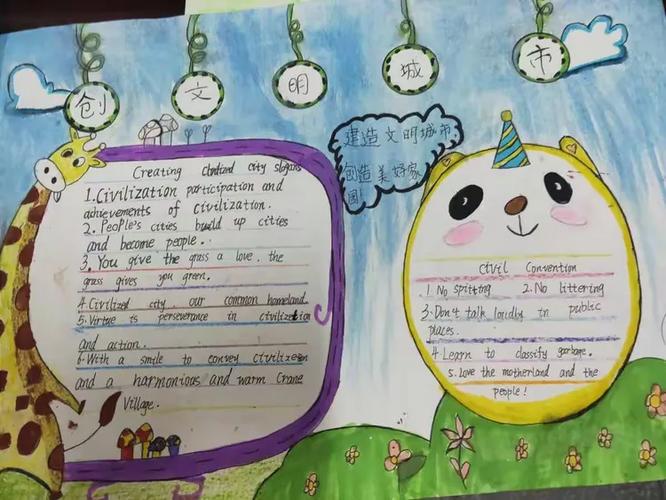 创文明城市
建造文明城市,
创造美好家
园!
Creating civilized city slogans
1. Civilization participation and
achievements of civilization.
2. People's cities build up cities
and become people.
3. You give the grass a love. the
grass gives you green.
4. Civilized city, our common homeland.
5. Virtue is perseverance in civilization
and action.
6. With a smile to convey civilization
and a harmonious and warm Crane
Village.
Civil Convention
1. No spitting 2. No littering
3. Don't talk loudly in public
places.
4 Learn to classify garbage.
5. Love the motherland and the
people!